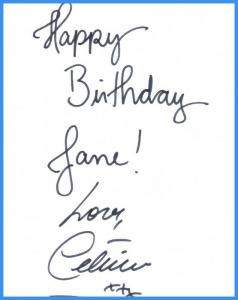 Happy
Birthday
Jane!
Love,
Celine
xx